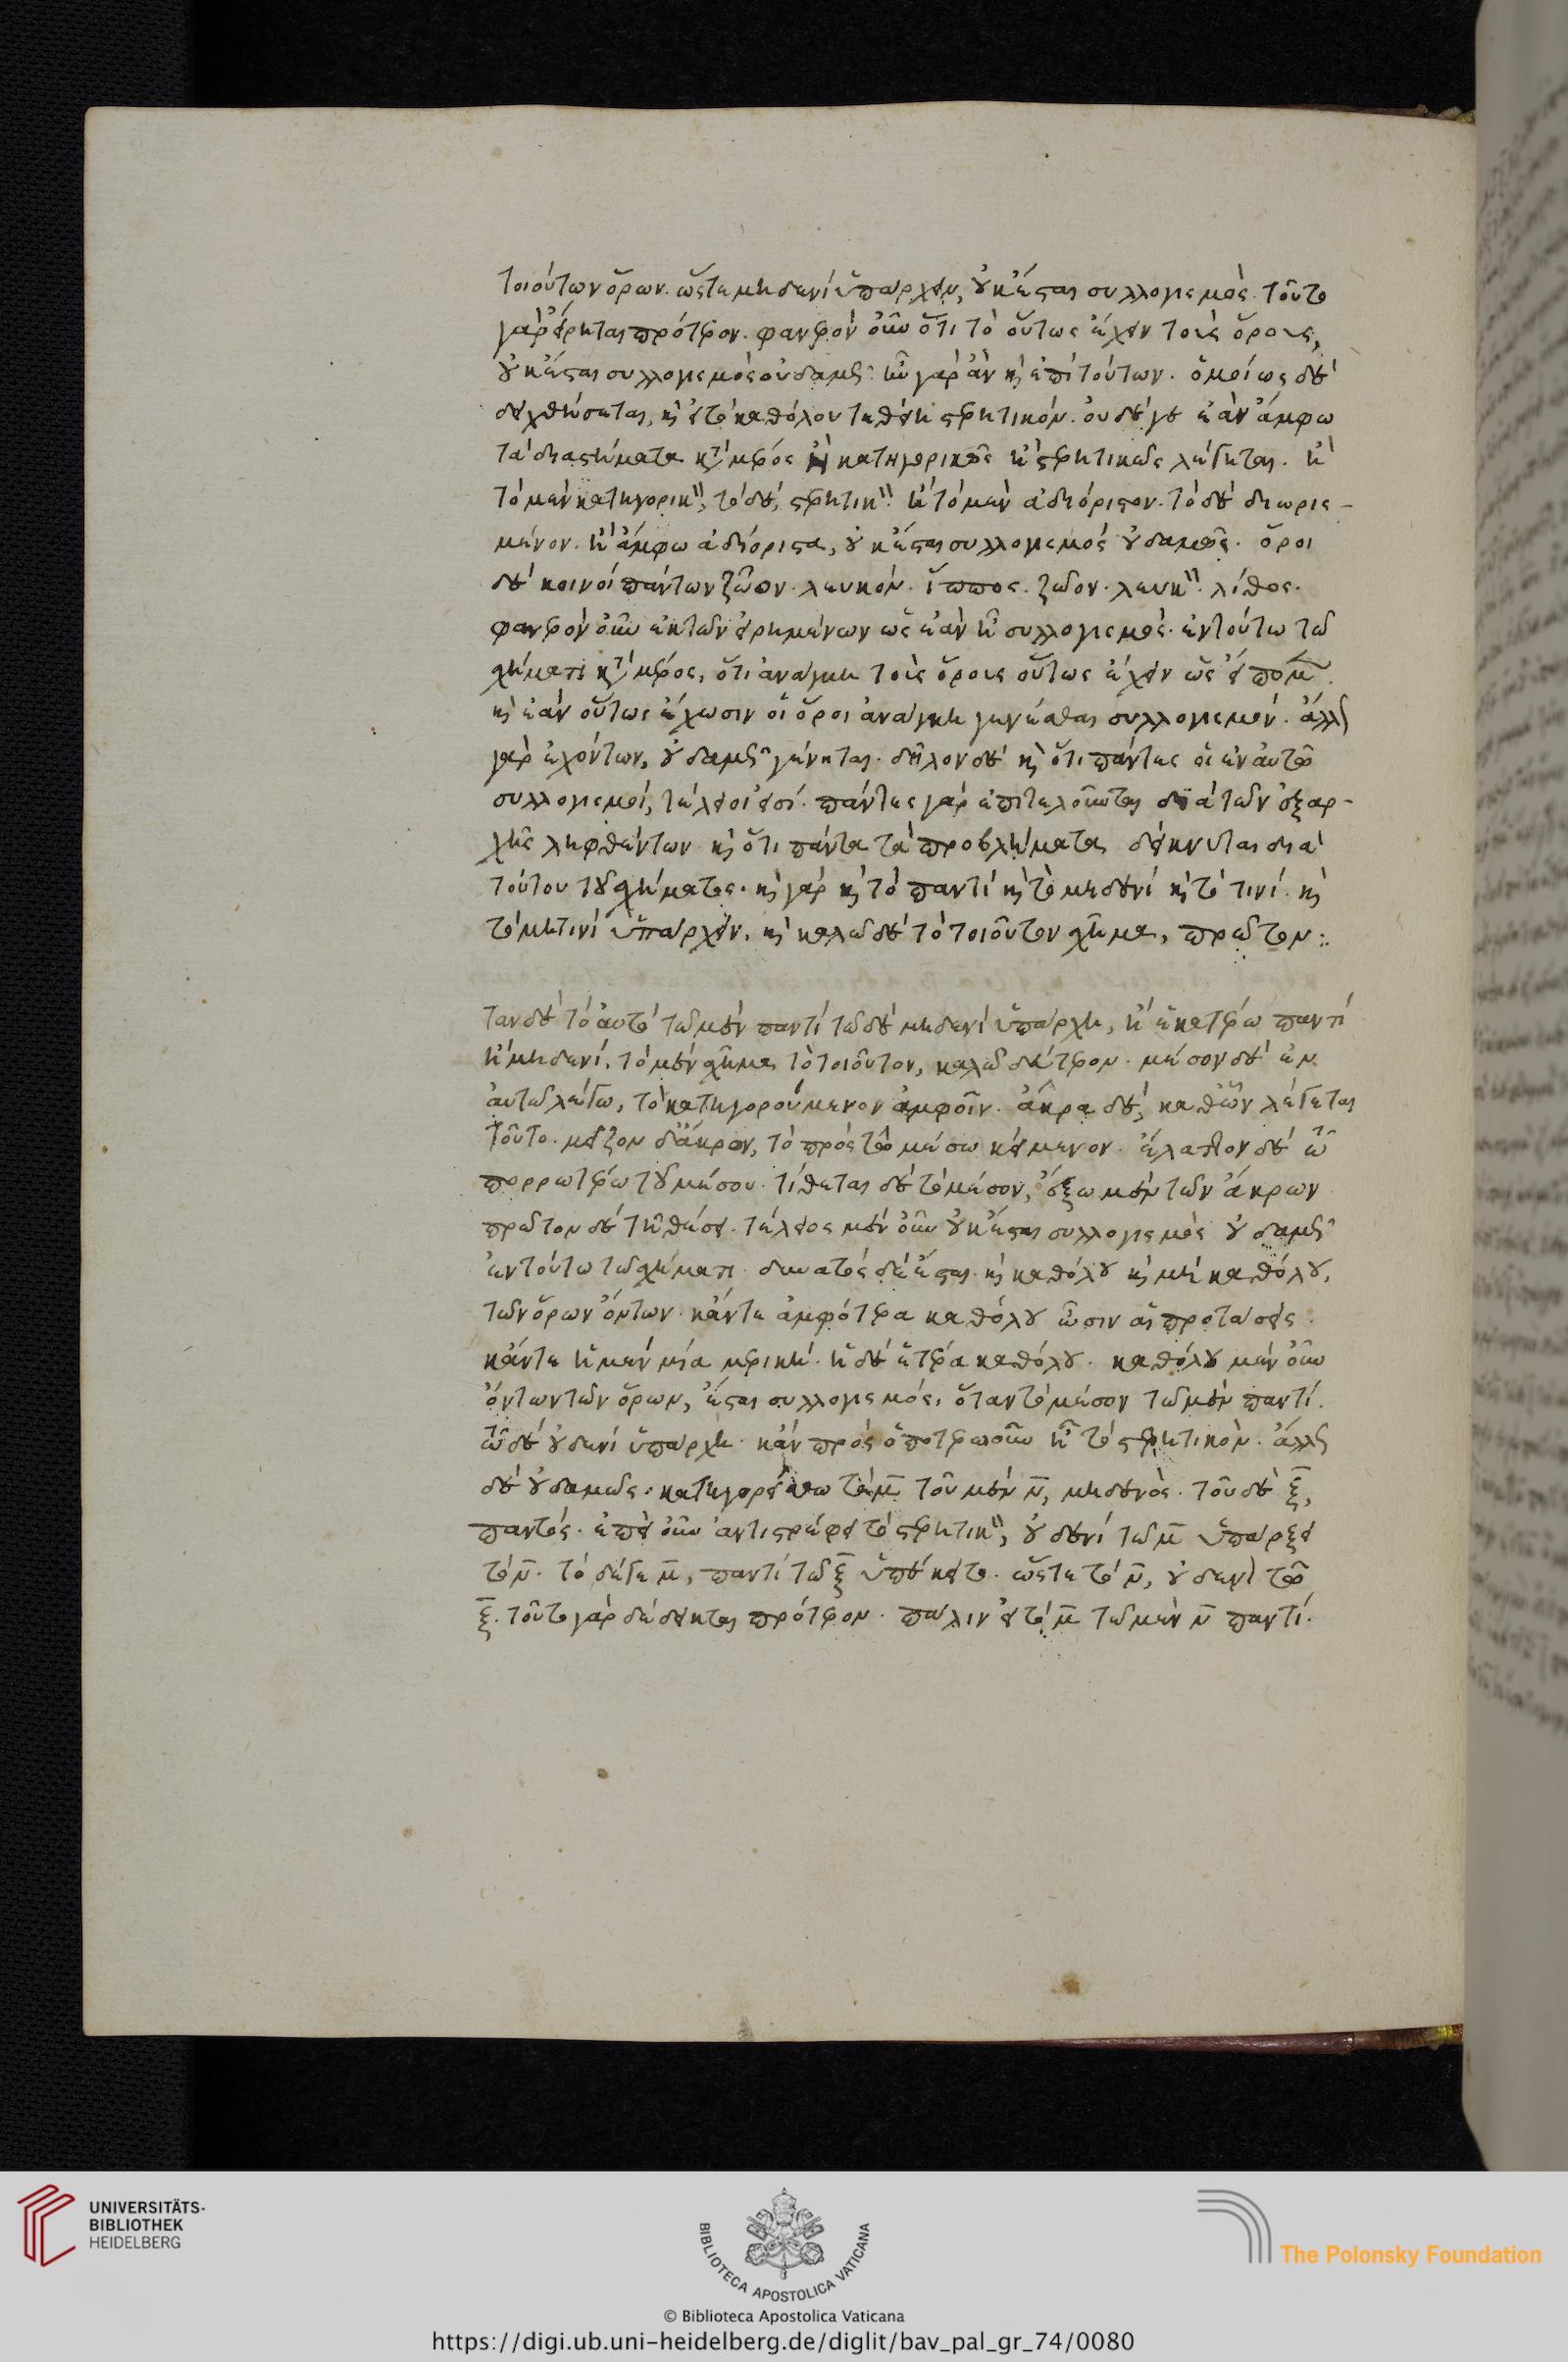 τοιούτων ὅρων. ὥστε μηδενὶ ὑπάρχειν, οὐκ ἔσται συλλογισμός. τοῦτο
γὰρ εἴρηται πρότερον. φανερὸν οὖν ὅτι τὸ οὕτως ἔχειν τοὺς ὅρους,
οὐκ ἔσται συλλογισμὸς οὐδαμῶς. ἦν γὰρ ἂν καὶ ἐπὶ τούτων. ὁμοίως δὲ
δειχθήσεται, καὶ εἰ τὸ καθόλου τεθείη στερητικόν. οὐδέ γε ἐὰν ἄμφω
τὰ διαστήματα κατὰ μέρος ἢ κατηγορικῶς ἢ στερητικῶς λέγηται. ἢ
τὸ μὲν κατηγορικὸν, τὸ δὲ, στερητικόν. ἢ τὸ μὲν ἀδιόριστον. τὸ δὲ διωρισ-
μένον. ἢ ἄμφω ἀδιόριστα, οὐκ ἔσται συλλογισμὸς οὐδαμῶς. ὅροι
δὲ κοινοὶ πάντων ζῶον. λευκόν. ἵππος. ζῶον. λευκόν. λίθος.
φανερὸν οὖν ἐκ τῶν εἰρημένων ὡς ἐὰν ᾖ συλλογισμὸς. ἐν τούτω τῶ
σχήματι κατὰ μέρος, ὅτι ἀνάγκη τοὺς ὅρους οὕτως ἔχειν ὡς εἴπομεν.
καὶ ἐὰν οὕτως ἔχωσιν οἱ ὅροι ἀνάγκη γενέσθαι συλλογισμόν. ἄλλως
γὰρ ἐχόντων, οὐδαμῶς γένηται. δῆλον δὲ καὶ ὅτι πάντες οἱ ἐν αὐτῶ
συλλογισμοὶ, τέλειοι εἰσί. πάντες γὰρ ἐπιτελοῦνται διὰ τῶν ἐξαρ-
χῆς ληφθέντων καὶ ὅτι πάντα τὰ προβλήματα δείκνυται διὰ
τούτου τοῦ σχήματος. καὶ γὰρ καὶ τὸ παντὶ καὶ τὸ μηδενὶ καὶ τὸ τινὶ. καὶ
τὸ μὴ τινὶ ὑπάρχειν. καὶ καλῶ δὲ τὸ τοιοῦτον σχῆμα, πρῶτον:.
ταν δὲ τὸ αὐτὸ τῶ μὲν παντὶ τῶ δὲ μηδενὶ ὑπάρχη, ἢ ἑκατέρω παντὶ
ἢ μηδενί. τὸ μὲν σχῆμα τὸ τοιοῦτον, καλῶ δεύτερον. μέσον δὲ ἐν
αὐτῶ λέγω, τὸ κατηγορούμενον ἀμφοῖν. ἄκρα δὲ, καθ' ὧν λέγεται
τοῦτο. μεῖζον δ' ἄκρον, τὸ πρὸς τῶ μέσω κείμενον. ἔλαττον δὲ τὸ
πορρωτέρω τοῦ μέσου. τίθεται δὲ τὸ μέσον, ἔξω μὲν τῶν ἄκρων.
πρῶτον δὲ τῇ θέσει. τέλειος μὲν οὖν οὐκ ἔσται συλλογισμὸς οὐδαμῶς
ἐν τούτω τῶ σχήματι. δυνατὸς δὲ ἔσται. καὶ καθόλου καὶ μὴ καθόλου.
τῶν ὅρων ὄντων. κἄντε ἀμφότερα καθόλου ὦσιν αἱ προτάσεις.
κἄντε ἡ μὲν μία μερική. ἡ δὲ ἑτέρα καθόλου. καθόλου μὲν οὖν
ὄντων τῶν ὅρων, ἔσται συλλογισμός, ὅταν τὸ μέσον τῶ μὲν παντί.
τῶ δὲ οὐδενὶ ὑπάρχη. κἂν πρὸς ὁποτερωοῦν ᾖ τὸ στερητικόν. ἄλλως
δὲ οὐδαμῶς. κατηγορείσθω τὸ μ̅ τοῦ μὲν ν̅, μηδενὸς. τοῦ δὲ ξ̅,
παντός. ἐπεὶ οὖν ἀντιστρέφει τὸ στερητικόν, οὐδενὶ τῶ μ̅ ὑπάρξει
τὸ ν̅. τὸ δέ γε μ̅, παντὶ τῶ ξ̅ ὑπέκειτο. ὥστε τὸ ν̅, οὐδενὶ τῶ
ξ̅. τοῦτο γὰρ δέδεικται πρότερον. πάλιν εἰ τὸ μ̅ τῶ μὲν ν̅ παντί.
UNIVERSITÄTS-
BIBLIOTHEK
HEIDELBERG
BIBLIOTECA APOSTOLICA VATICANA
The Polonsky Foundation
© Biblioteca Apostolica Vaticana
https://digi.ub.uni-heidelberg.de/diglit/bav_pal_gr_74/0080